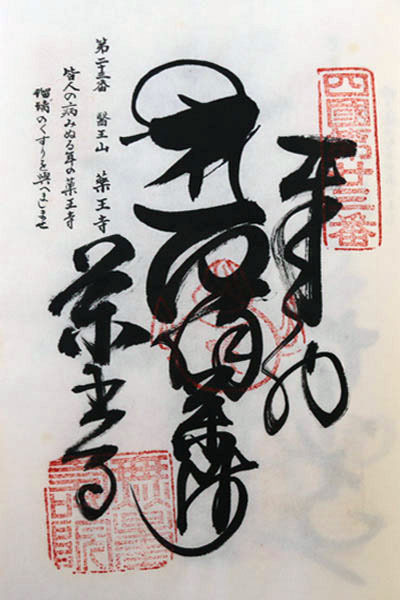 四國第廿三番
奉納
薬王寺
第二十三番 醫王山 薬王寺
皆人の病みぬる年の薬王寺
瑠璃のくすりを與へましませ